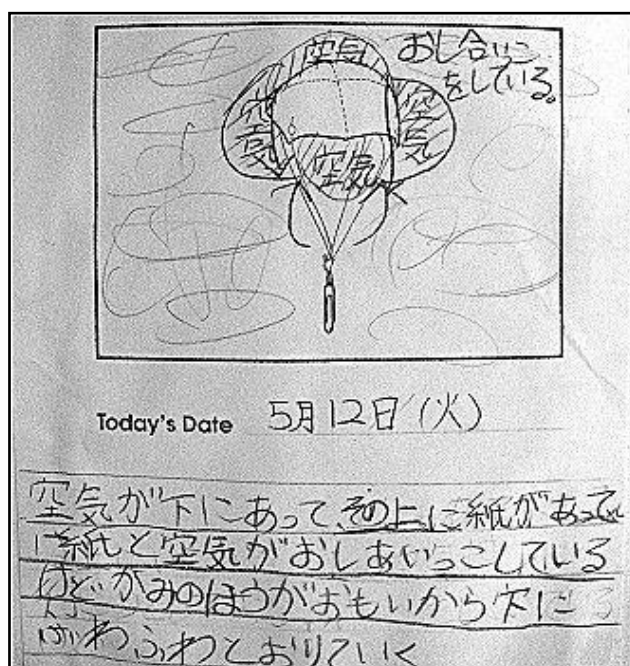 空気
おし合いこ
をしている。
空気
空気
空気
Today's Date 5月12日(火)
空気が下にあって、その上に紙があって
に紙と空気がおしあいっこしている
けど、かみのほうがおもいから下に
ふわふわとおりていく